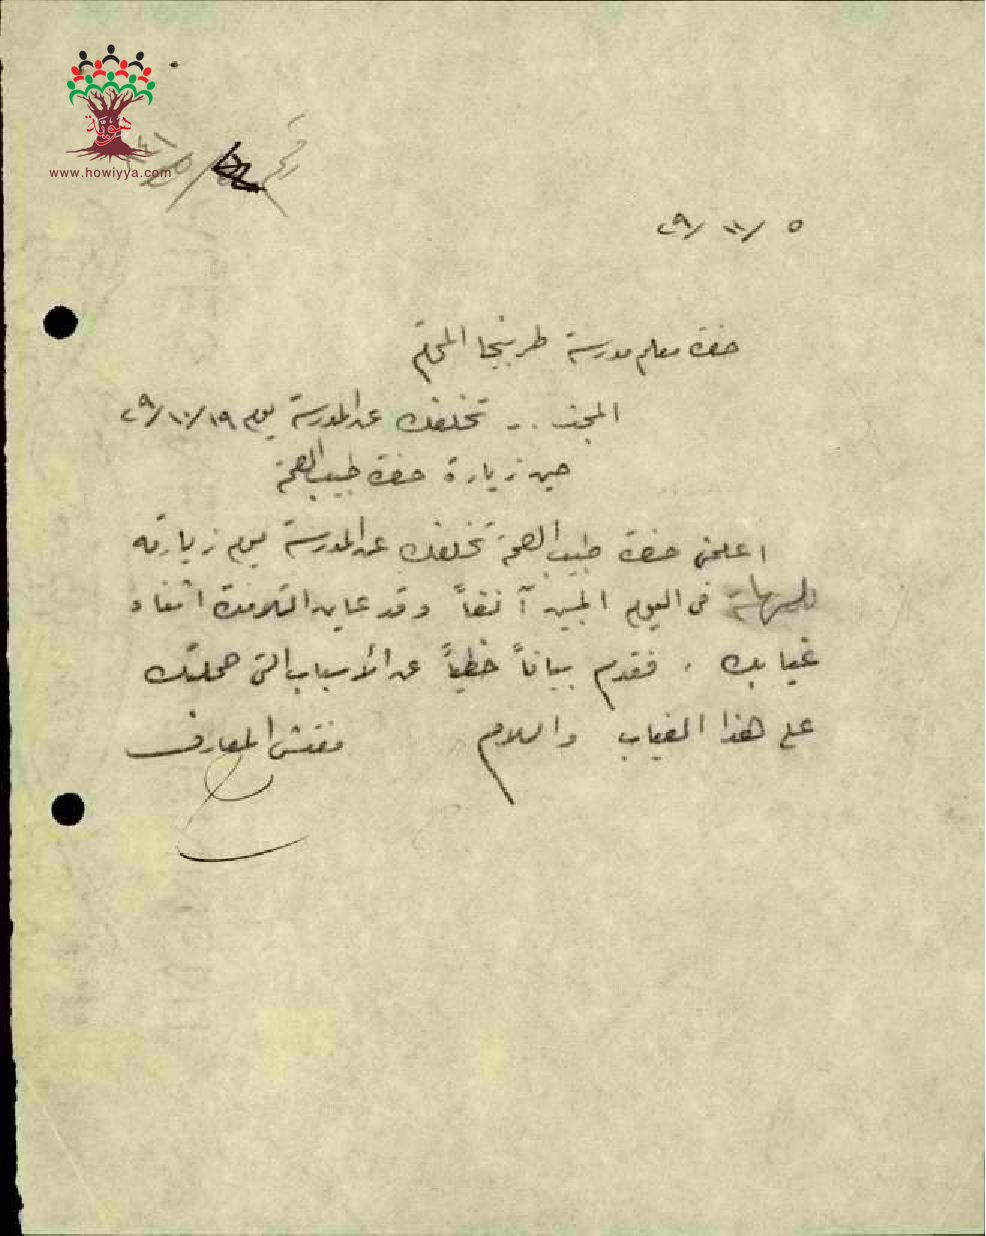 هوية
www.howiyya.com
رقم
٥ / ١١ / ٢٩
حضرة معلم مدرسة طربيخا المحترم
المبحث .. تخلفك عن المدرسة يوم ١٩/١٠/٢٩
حين زيارة حضرة طبيب الصحة
اعلمني حضرة طبيب الصحة تخلفك عن المدرسة يوم زيارته
في اليوم المبين آنفاً وقد عاين التلامذة اثناء
غيابك . فقدم بياناً خطياً عن الأسباب التي حملتك
على هذا الغياب والسلام مفتش المعارف